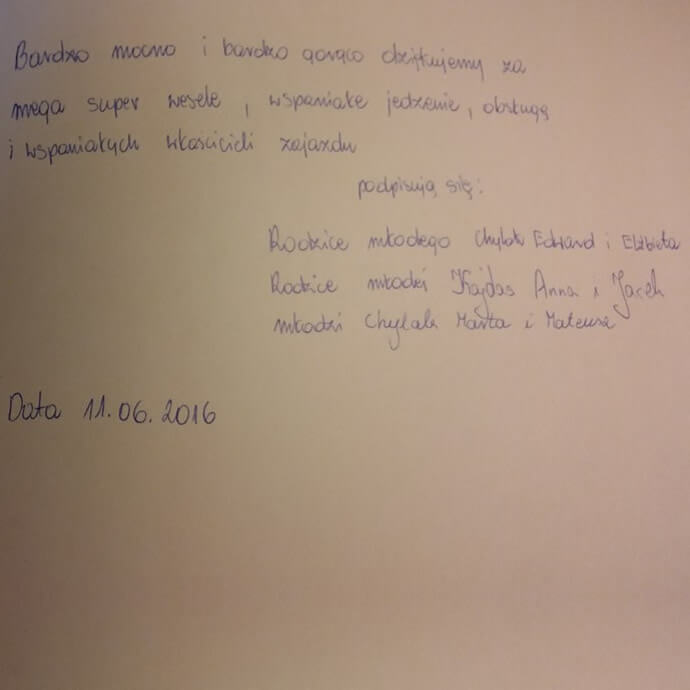 Bardzo mocno i bardzo gorąco dziękujemy za
mega super wesele, wspaniałe jedzenie, obsługę
i wspaniałych właścicieli zajazdu
podpisują się:
Rodzice młodego Edward i Elżbieta
Rodzice młodej Kajdas Anna i Jacek
młodzi Chylak Marta i Mateusz
Data 11.06.2016